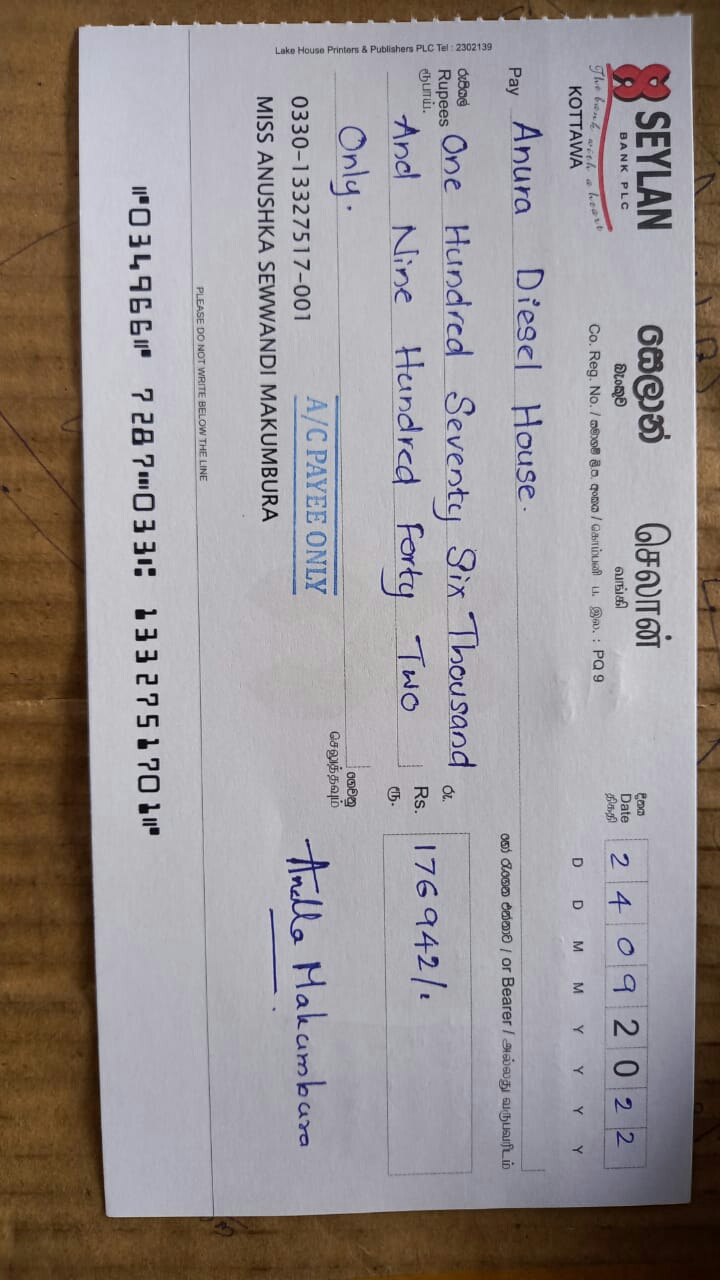 SEYLAN
BANK PLC
The bank with a heart
KOTTAWA
සෙලාන් செலான்
බැංකුව வங்கி
Co. Reg. No. / සමාගම් ලි.ප. අංකය / கொம்பனி ப. இல. : PQ 9
දිනය
Date
திகதி
2 4 0 9 2 0 2 2
D D M M Y Y Y Y
Pay Anura Diesel House.
හෝ රැගෙන එන්නාට / or Bearer / அல்லது வருபவரிடம்
රුපියල්
Rupees One Hundred Seventy Six Thousand
ரூபாய்.
And Nine Hundred Forty Two
Only.
ගෙවනු
செலுத்தவும்
රු.
Rs. 176942/-
ரூ.
0330-13327517-001
A/C PAYEE ONLY
MISS ANUSHKA SEWWANDI MAKUMBURA
Makumbura
PLEASE DO NOT WRITE BELOW THE LINE
⑈034966⑈ 7287⑉033⑆ 1332751701⑈
Lake House Printers & Publishers PLC Tel : 2302139